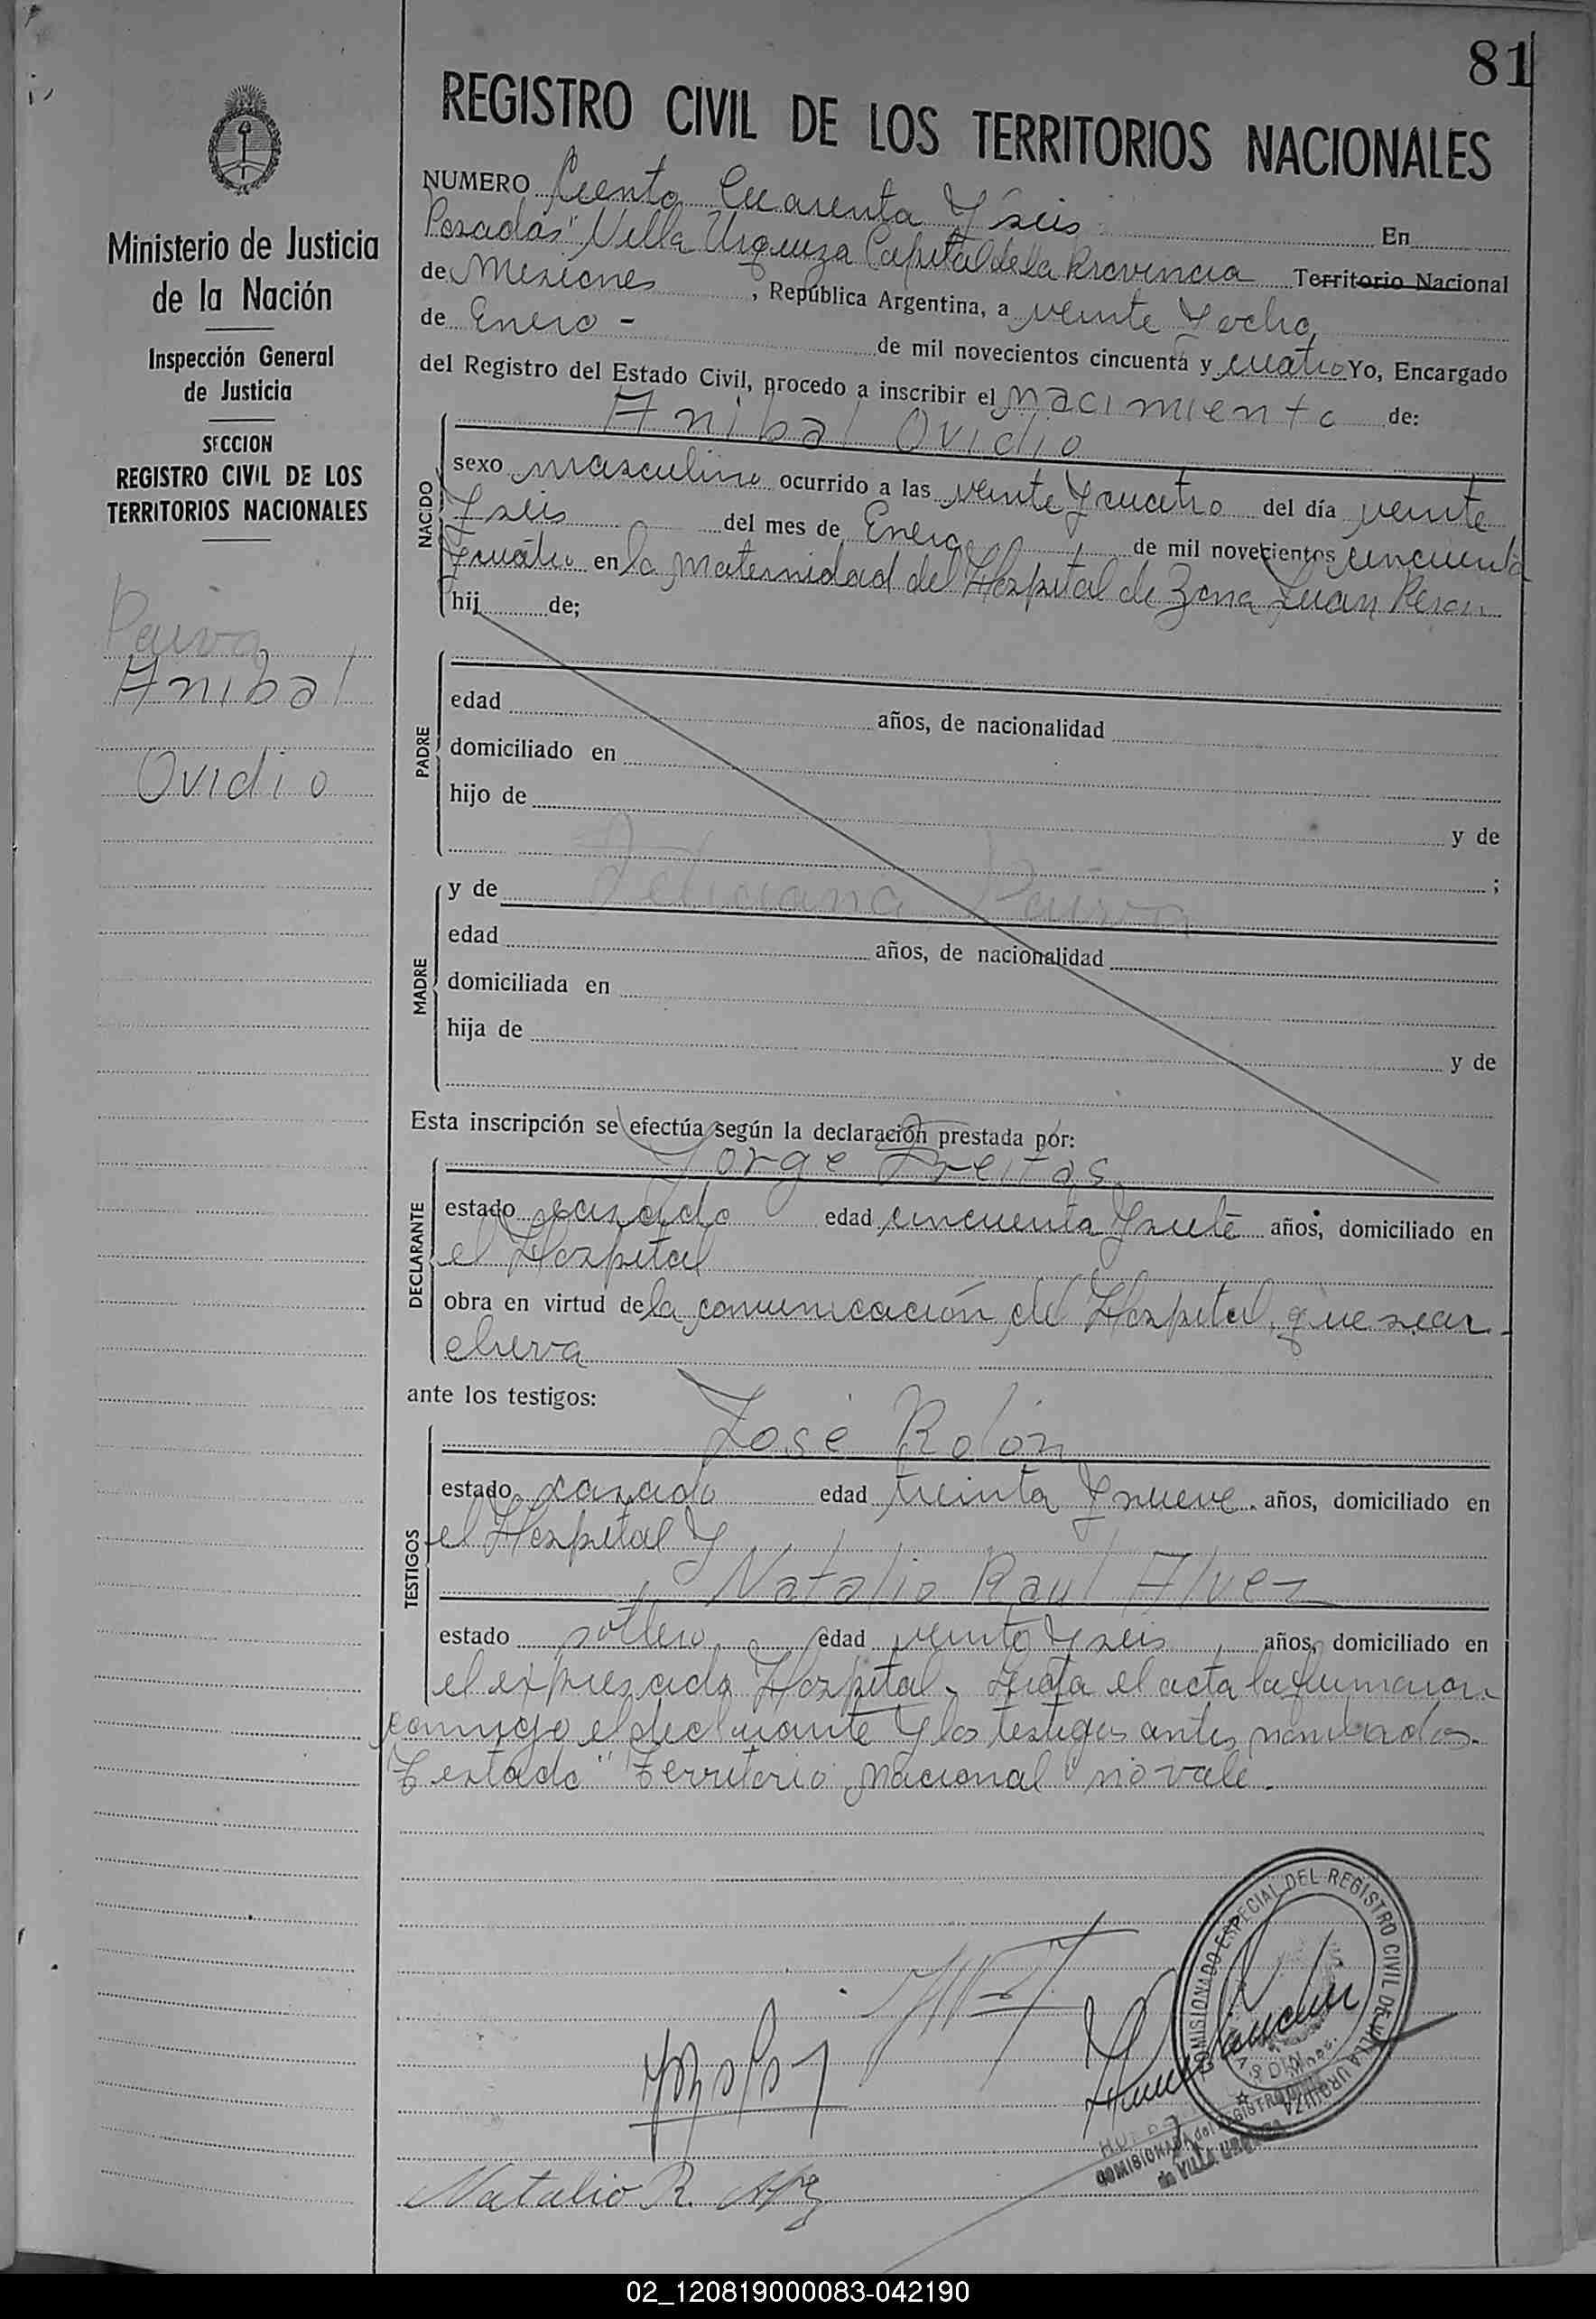 81
REGISTRO CIVIL DE LOS TERRITORIOS NACIONALES
Ministerio de Justicia
de la Nación
Inspección General
de Justicia
SECCION
REGISTRO CIVIL DE LOS
TERRITORIOS NACIONALES
Paiva
Anibal
Ovidio
NUMERO Ciento Cuarenta Y seis En
Posadas "Villa Urquiza Capital de la Provincia Territorio Nacional
de Misiones, República Argentina, a veinte Y ocho
de Enero - de mil novecientos cincuenta y cuatro Yo, Encargado
del Registro del Estado Civil, procedo a inscribir el nacimiento de:
Anibal Ovidio
NACIDO
sexo masculino ocurrido a las veinte Y cuatro del día veinte
Y seis del mes de Enero de mil novecientos cincuenta
Y cuatro en la Maternidad del Hospital de Zona Juan Peron
hij de;
PADRE
edad años, de nacionalidad
domiciliado en
hijo de y de
;
MADRE
y de Feliciana Paiva
edad años, de nacionalidad
domiciliada en
hija de y de
Esta inscripción se efectúa según la declaración prestada por:
DECLARANTE
Jorge Freitas
estado casado edad cincuenta Y siete años, domiciliado en
el Hospital
obra en virtud de la comunicación del Hospital, que se ar-
chiva
ante los testigos:
TESTIGOS
José Rolón
estado casado edad treinta Y nueve años, domiciliado en
el Hospital Y
Natalio Raul Alvez
estado soltero edad veinte Y seis, años, domiciliado en
el expresado Hospital. Leida el acta la firmaron
conmigo el declarante Y los testigos antes nombrados.
Testado "Territorio Nacional" no vale.
COMISIONADO ESPECIAL DEL REGISTRO CIVIL DE VILLA URQUIZA
COMISIONADA del REGISTRO
de VILLA URQUIZA
Natalio R.
02_120819000083-042190